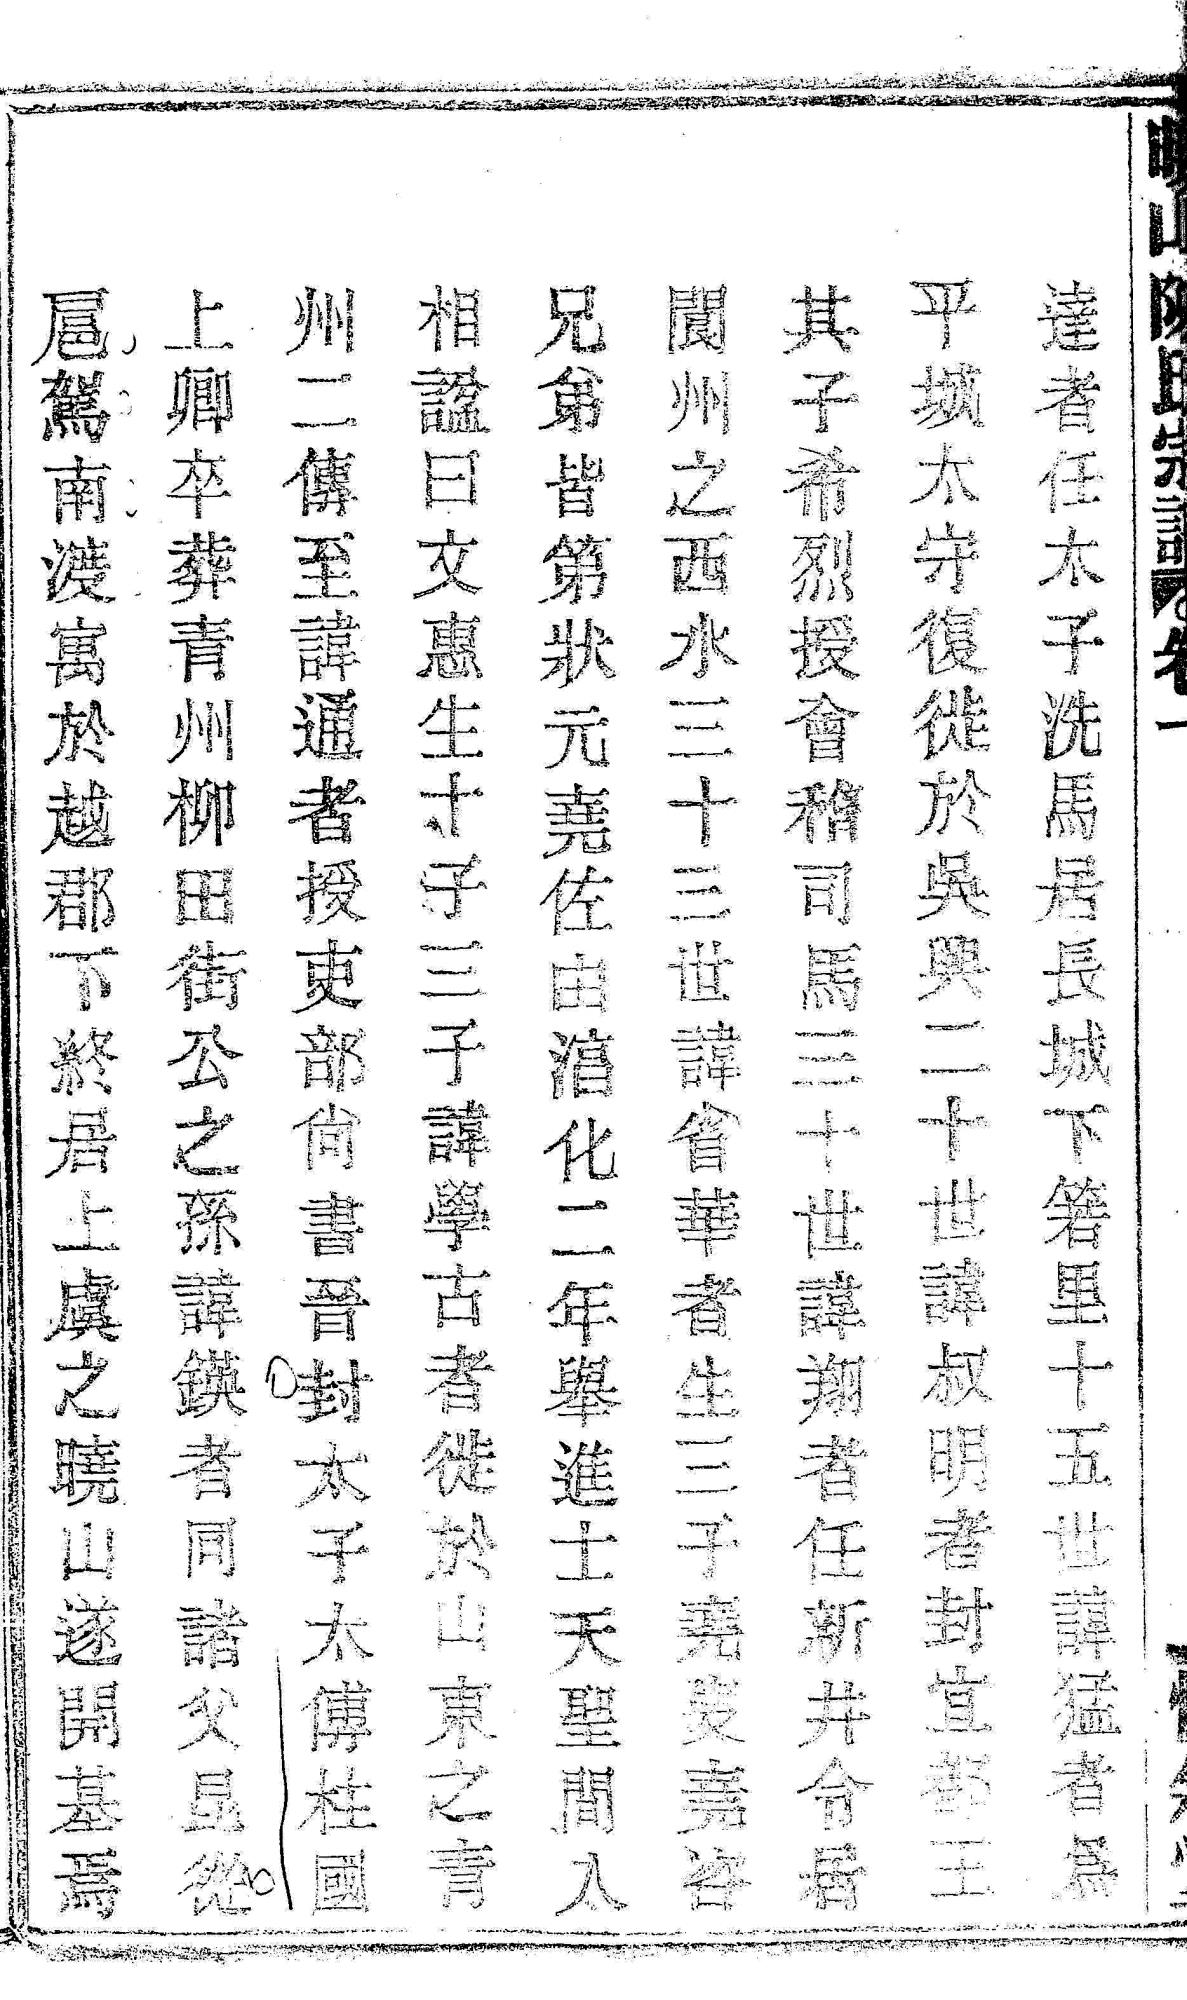 山陳氏宗譜 卷一
達者任太子洗馬居長城下箬里十五世諱猛者爲
平城太守復徙於吳興二十世諱叔明者封宜都王
其子希烈授會稽司馬三十世諱翔者任新井令居
閬州之西水三十三世諱省華者生三子堯叟堯咨
兄弟皆第狀元堯佐由淯化二年舉進士天聖間入
相諡曰文惠生十子三子諱學古者徙於山東之青
州二傳至諱通者授吏部尚書晉封太子太傅柱國
上卿卒葬青州柳田街公之孫諱鍈者同諸父昆從
扈駕南渡寓於越郡下終居上虞之曉山遂開基焉